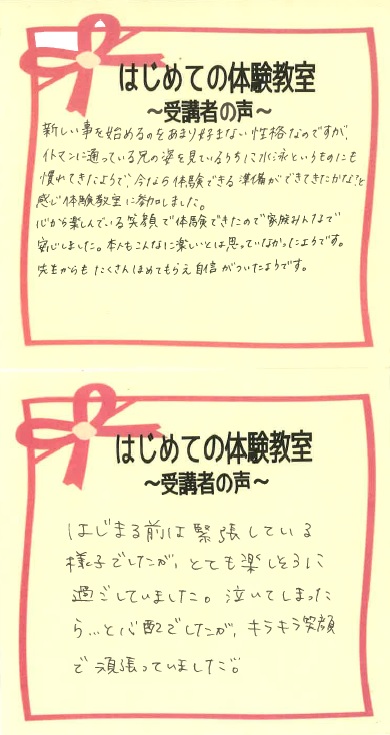 はじめての体験教室
～受講者の声～
新しい事を始めるのをあまり好まない性格なのですが、
イトマンに通っている兄の姿を見ているうちに水泳というものにも
慣れてきたようで、今なら体験できる準備ができてきたかな?と
感じ体験教室に参加しました。
心から楽しんでいる笑顔で体験できたので家族みんなで
安心しました。本人もこんなに楽しいとは思っていなかったようです。
先生からもたくさんほめてもらえ自信がついたようです。
はじめての体験教室
～受講者の声～
はじまる前は緊張している
様子でしたが、とても楽しそうに
過ごしていました。泣いてしまった
ら…と心配でしたが、キラキラ笑顔
で頑張っていました。